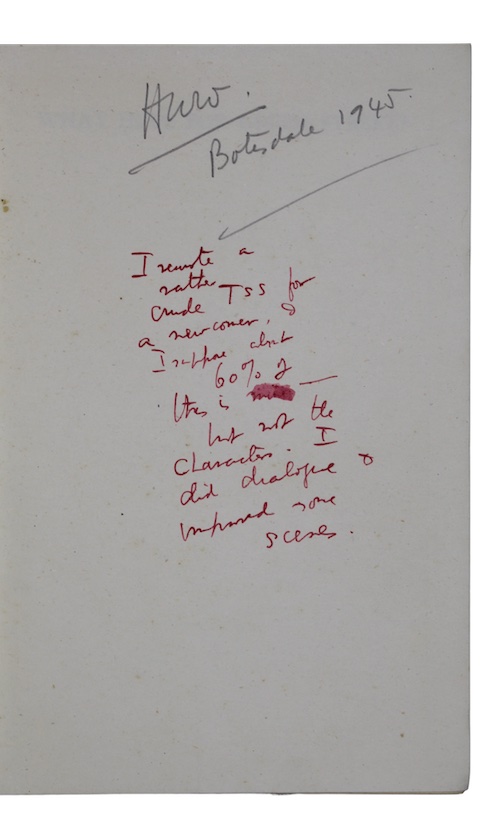 Botesdale 1945.
I rewrote a
rather
crude TSS for
a newcomer, &
I suppose about
60% of
this is mine —
but not the
characters. I
did dialogue &
improved some
scenes.